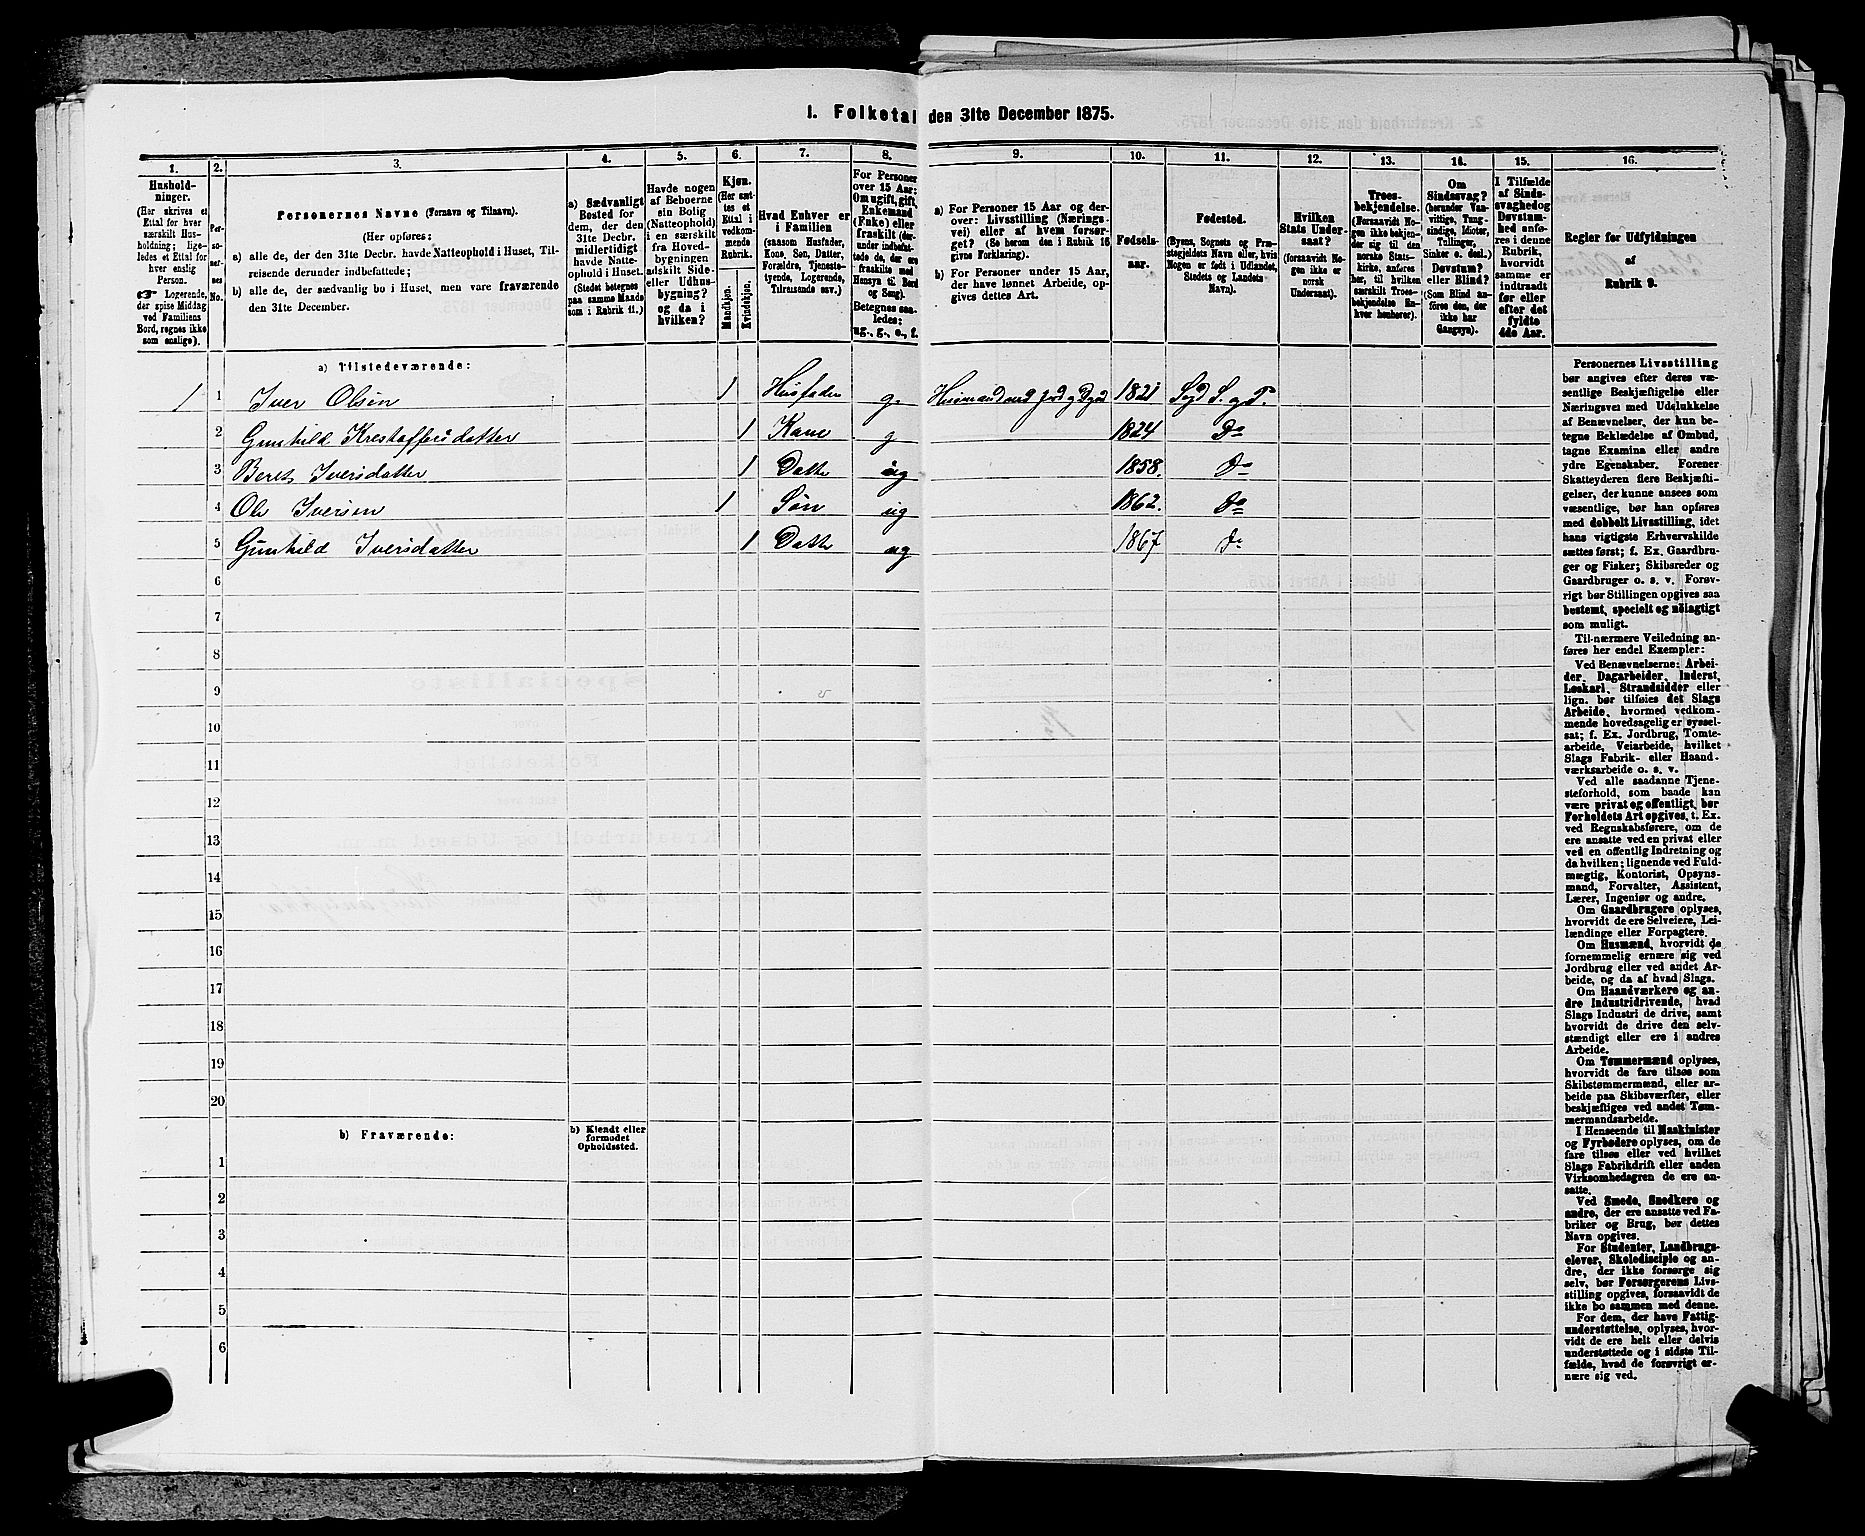 1. Folketal den 31te December 1875.
1.
2.
3.
4.
5.
6.
7.
8.
9.
10.
11.
12.
13.
14.
15.
16.
Hushold-
ninger.
(Her skrives et
Ettal for hver
særskilt Hus-
holdning; lige-
ledes et Ettal for
hver enslig
Person.
☞ Logerende,
der spise Middag
ved Familiens
Bord, regnes ikke
som enslige).
Per-
so-
ner-
nes
No.
Personernes Navne (Fornavn og Tilnavn).
(Her opføres:
a) alle de, der den 31te Decbr. havde Natteophold i Huset, Til-
reisende derunder indbefattede;
b) alle de, der sædvanlig bo i Huset, men vare fraværende
den 31te December.
a) Sædvanligt
Bosted for
dem, der den
31te Decbr.
midlertidigt
havde Natte-
ophold i Huset.
(Stedet betegnes
paa samme Maade
som i Rubrik 11.)
Havde nogen
af Beboerne
sin Bolig
(Natteophold)
i en særskilt
fra Hoved-
bygningen
adskilt Side-
eller Udhus-
bygning?
og da i
hvilken?
Kjøn.
(Her sæt-
tes et
Ettal i
vedkom-
mende
Rubrik.
Mandkjøn.
Kvindekjøn.
Hvad Enhver er
i Familien
(saasom Husfader,
Kone, Søn, Datter,
Forældre, Tjeneste-
tyende, Logerende,
Tilreisende osv.)
For Personer
over 15 Aar:
Om ugift, gift,
Enkemand
(Enke) eller
fraskilt (der-
under indbefat-
tede de, der ere
fraskilte med
Hensyn til Bord
og Seng).
Betegnes saa-
ledes:
ug., g., e., f.
a) For Personer 15 Aar og der-
over: Livsstilling (Nærings-
vei) eller af hvem forsør-
get? (Se herom den i Rubrik 16
givne Forklaring).
b) For Personer under 15 Aar,
der have lønnet Arbeide, op-
gives dettes Art.
Fødsels-
aar.
Fødested.
(Byens, Sognets og Præ-
stegjeldets Navn eller, hvis
Nogen er født i Udlandet,
Stedets og Landets
Navn).
Hvilken
Stats Under-
saat?
(forsaavidt No-
gen ikke er
norsk
Undersaat).
Troes-
bekjendelse.
(Forsaavidt No-
gen ikke bekjen-
der sig til den
norske Stats-
kirke, anføres
her, til hvilken
særskilt Troes-
bekjendelse En-
hver henhører).
Om
Sindssvag?
(herunder Van-
vittige, Tung-
sindige, Idioter,
Tullinger,
Sinker o. desl.)
Døvstum?
eller Blind?
(Som Blind an-
føres den, der
ikke har
Gangsyn).
I Tilfælde
af Sinds-
svaghed og
Døvstum-
hed anfø-
res i denne
Rubrik,
hvorvidt
samme er
indtraadt
før eller
efter det
fyldte
4de Aar.
Regler for Udfyldningen
af
Rubrik 9.
a) Tilstedeværende:
1 1 Iver Olsen 1 Husfader g. Husmand med Jord og Dyrk 1821 Sogd S. og P.
2 Gunhild Krestoffersdatter 1 Kone g 1824 Do
3 Beret Iversdatter 1 Datte ug 1858. Do
4 Ole Iversen 1 Søn ug 1862. Do
5 Gunhild Iversdatter 1 Datte ug 1867 Do
6
7
8
9
10
11
12
13
14
15
16
17
18
19
20
b) Fraværende:
b) Kjendt eller
formodet
Opholdssted.
1
2
3
4
5
6
Personernes Livsstilling
bør angives efter deres væ-
sentlige Beskjæftigelse eller
Næringsvei med Udelukkelse
af Benævnelser, der kun be-
tegne Beklædelse af Ombud,
tagne Examina eller andre
ydre Egenskaber. Forener
Skatteyderen flere Beskjæfti-
gelser, der kunne ansees som
væsentlige, bør han opføres
med dobbelt Livsstilling, idet
hans vigtigste Erhvervskilde
sættes først; f. Ex. Gaardbru-
ger og Fisker; Skibsreder og
Gaardbruger o. s. v. Forøv-
rigt bør Stillingen opgives saa
bestemt, specielt og nöiagtigt
som muligt.
Til nærmere Veiledning an-
føres her endel Exempler:
Ved Benævnelserne: Arbei-
der, Dagarbeider, Inderst,
Løskarl, Strandsidder eller
lign. bør tilføies det Slags
Arbeide, hvormed vedkom-
mende hovedsagelig er syssel-
sat; f. Ex. Jordbrug, Tomte-
arbeide, Veiarbeide, hvilket
Slags Fabrik- eller Haand-
værksarbeide o. s. v.
Ved alle saadanne Tjene-
steforhold, som baade kan
være privat og offentligt, bør
Forholdets Art opgives, t. Ex.
ved Regnskabsførere, om de
ere ansatte ved en privat eller
ved en offentlig Indretning og
da hvilken; lignende ved Fuld-
mægtig, Kontorist, Opsyns-
mand, Forvalter, Assistent,
Lærer, Ingeniør og andre.
Om Gaardbrugere oplyses,
hvorvidt de ere Selveiere, Lei-
lændinge eller Forpagtere.
Om Husmænd, hvorvidt de
fornemmelig ernære sig ved
Jordbrug eller ved andet Ar-
beide, og da af hvad Slags.
Om Haandværkere og an-
dre Industridrivende, hvad
Slags Industri de drive, samt
hvorvidt de drive den selv-
stændigt eller ere i andres
Arbeide.
Om Tømmermænd oplyses,
hvorvidt de fare tilsøs som
Skibstømmermænd, eller ar-
beide paa Skibsværfter, eller
beskjæftiges ved andet Tøm-
mermandsarbeide.
I Henseende til Maskinister
og Fyrbødere oplyses, om de
fare tilsøs eller ved hvilket
Slags Fabrikdrift eller anden
Virksomhedsgren de ere an-
satte.
Ved Smede, Snedkere og
andre, der ere ansatte ved Fa-
briker og Brug, bør dettes
Navn opgives.
For Studenter, Landbrugs-
elever, Skoledisciple og an-
dre, der ikke forsørge sig
selv, bør Forsørgerens Livs-
stilling opgives, forsaavidt de
ikke bo sammen med denne.
For dem, der have Fattig-
understøttelse, oplyses, hvor-
vidt de ere helt eller delvis
understøttede og i sidste Til-
fælde, hvad de forøvrigt er-
nære sig ved.